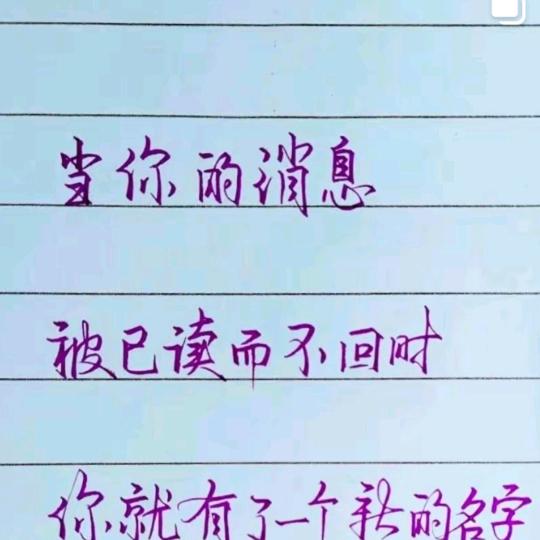 当你的消息
被已读而不回时
你就有了一个新的名字